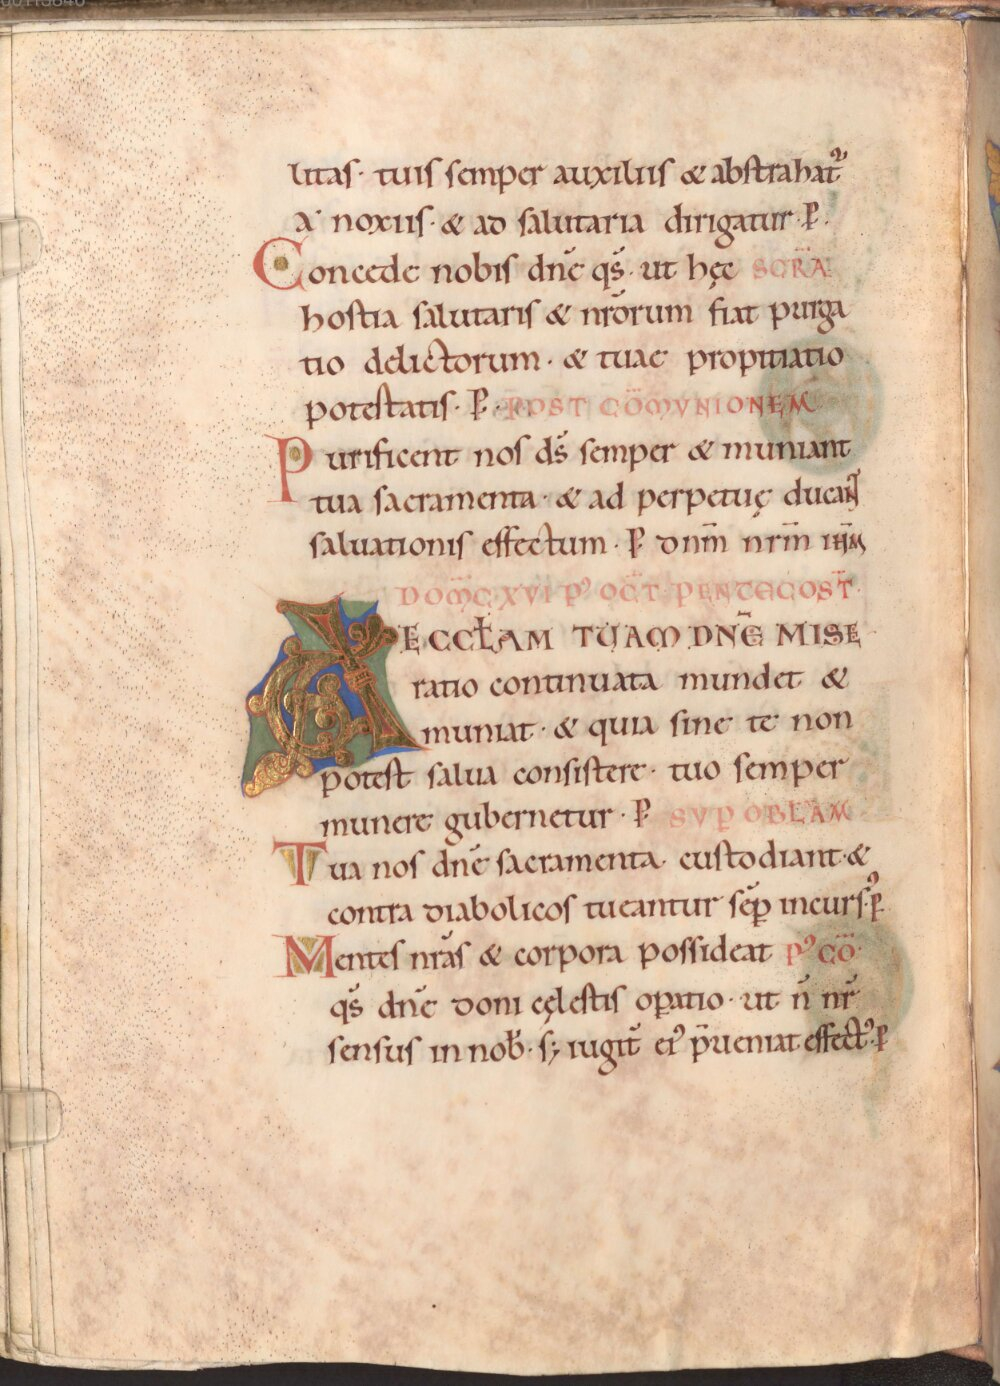 litas· tuis semper auxiliis & abstrahat᷑
A noxiis· & ad salutaria dirigatur· P̄.
Concede nobis dn̄e qs̄· ut hęc SCRA
hostia salutaris & nr̄orum fiat purga
tio delictorum· & tuae propitiatio
potestatis· P̄· POST CŌMVNIONEM
Purificent nos ds̄ semper & muniant
tua sacramenta· & ad perpetuę ducant
saluationis effectum· P̄ dnm̄ nrm̄ ihm̄
DOMC̄ XVI P' OCT̄ PENTECOST̄
ECCŁAM TUAM DNĒ MISE
ratio continuata mundet &
muniat· & quia sine te non
potest salua consistere· tuo semper
munere gubernetur· P̄ SVP OBLAM̄
Tua nos dn̄e sacramenta· custodiant· &
contra diabolicos tueantur sēp incurs'· P̄
Mentes nr̄as & corpora possideat P' CŌ·
qs̄ dn̄e doni cęlestis oꝑatio· ut n̄ nr̄
sensus in nob̄· s; iugit̄ ei' p̄ueniat effect'· P̄